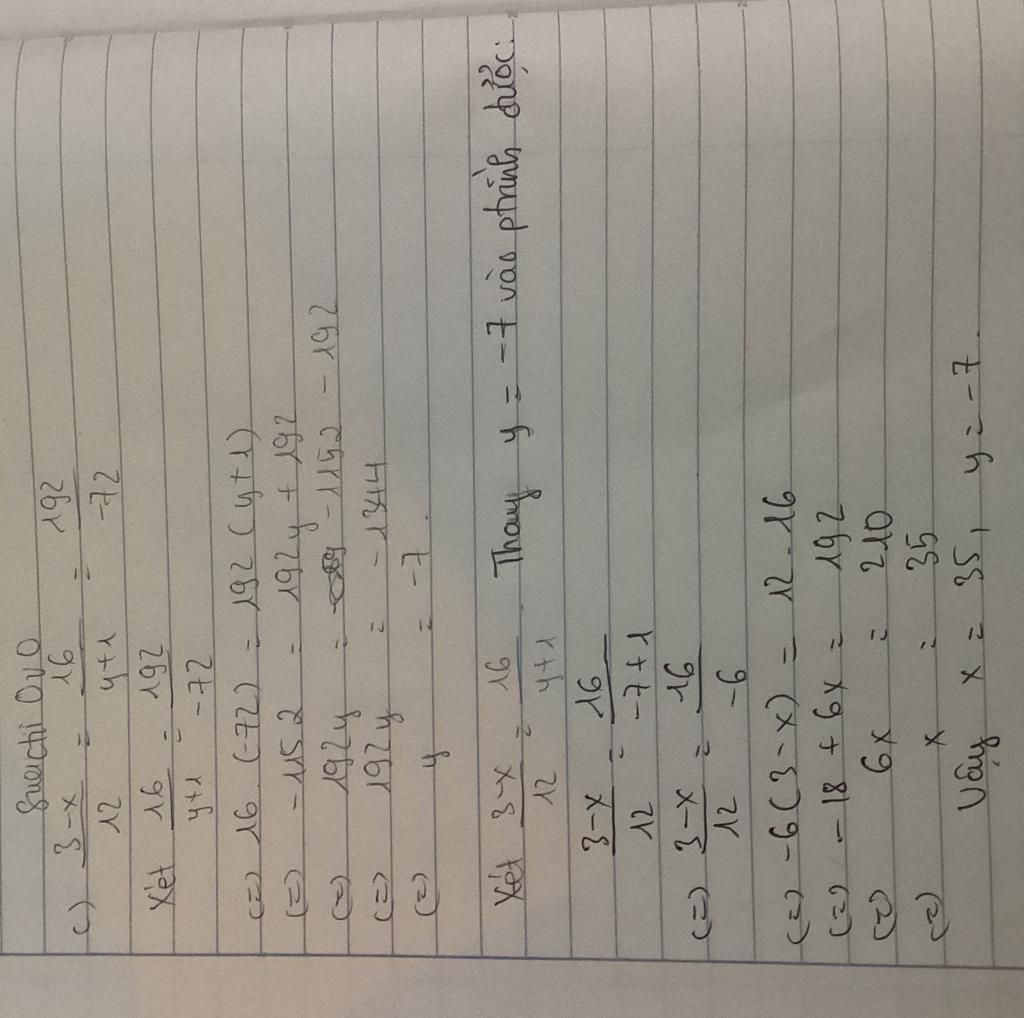 c) (3-x)/12 = 16/(y+1) = 192/-72
Xét 16/(y+1) = 192/-72
(=) 16 . (-72) = 192 (y+1)
(=) -1152 = 192y + 192
(=) 192y = -1152 - 192
(=) 192y = -1344
(=) y = -7.
Xét (3-x)/12 = 16/(y+1) Thay y = -7 vào ptrình được:
(3-x)/12 = 16/(-7+1)
(=) (3-x)/12 = 16/-6
(=) -6(3-x) = 12.16
(=) -18 + 6x = 192
(=) 6x = 210
(=) x = 35
Vậy x = 35, y = -7.